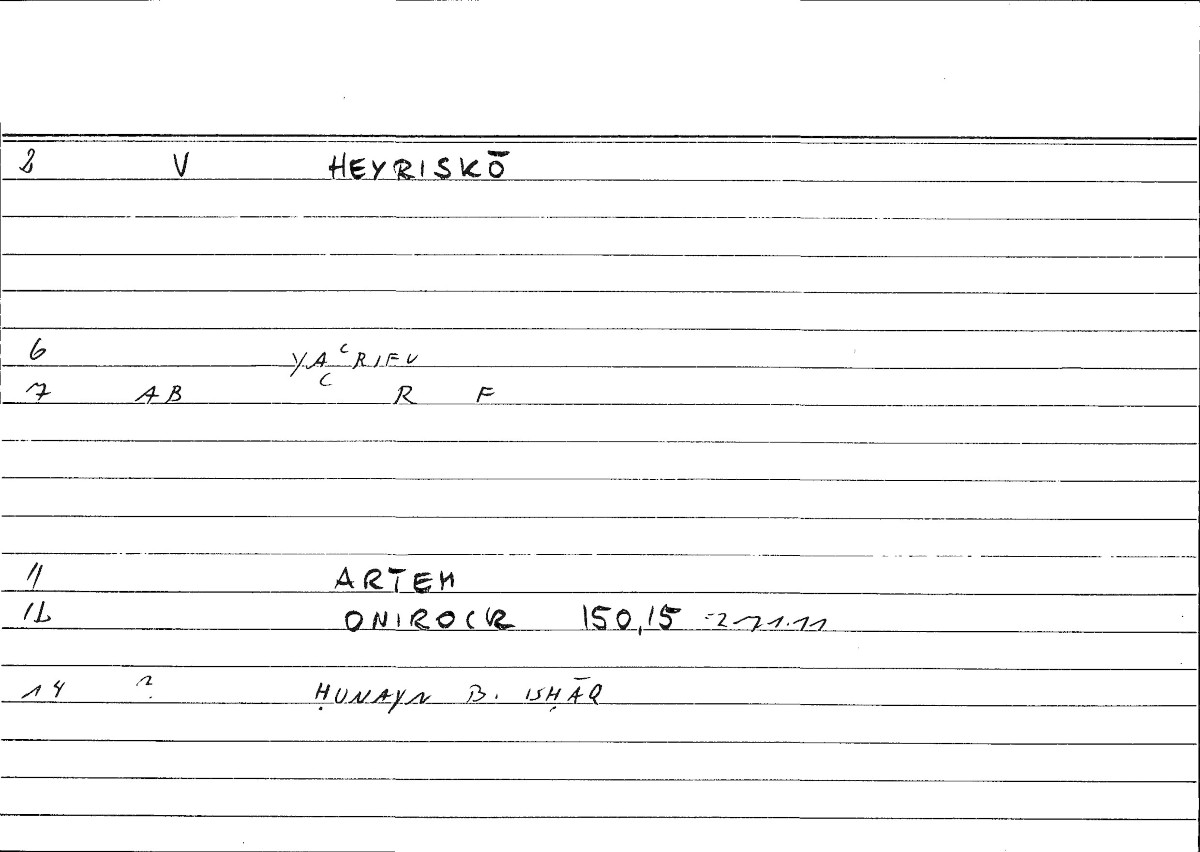 2 V HEYRISKŌ
6 YAʿRIFU
7 AB ʿ R F
11 ARTEM
12 ONIROCR 150,15 = 271.11
14 ? ḤUNAYN B. ISḤĀQ